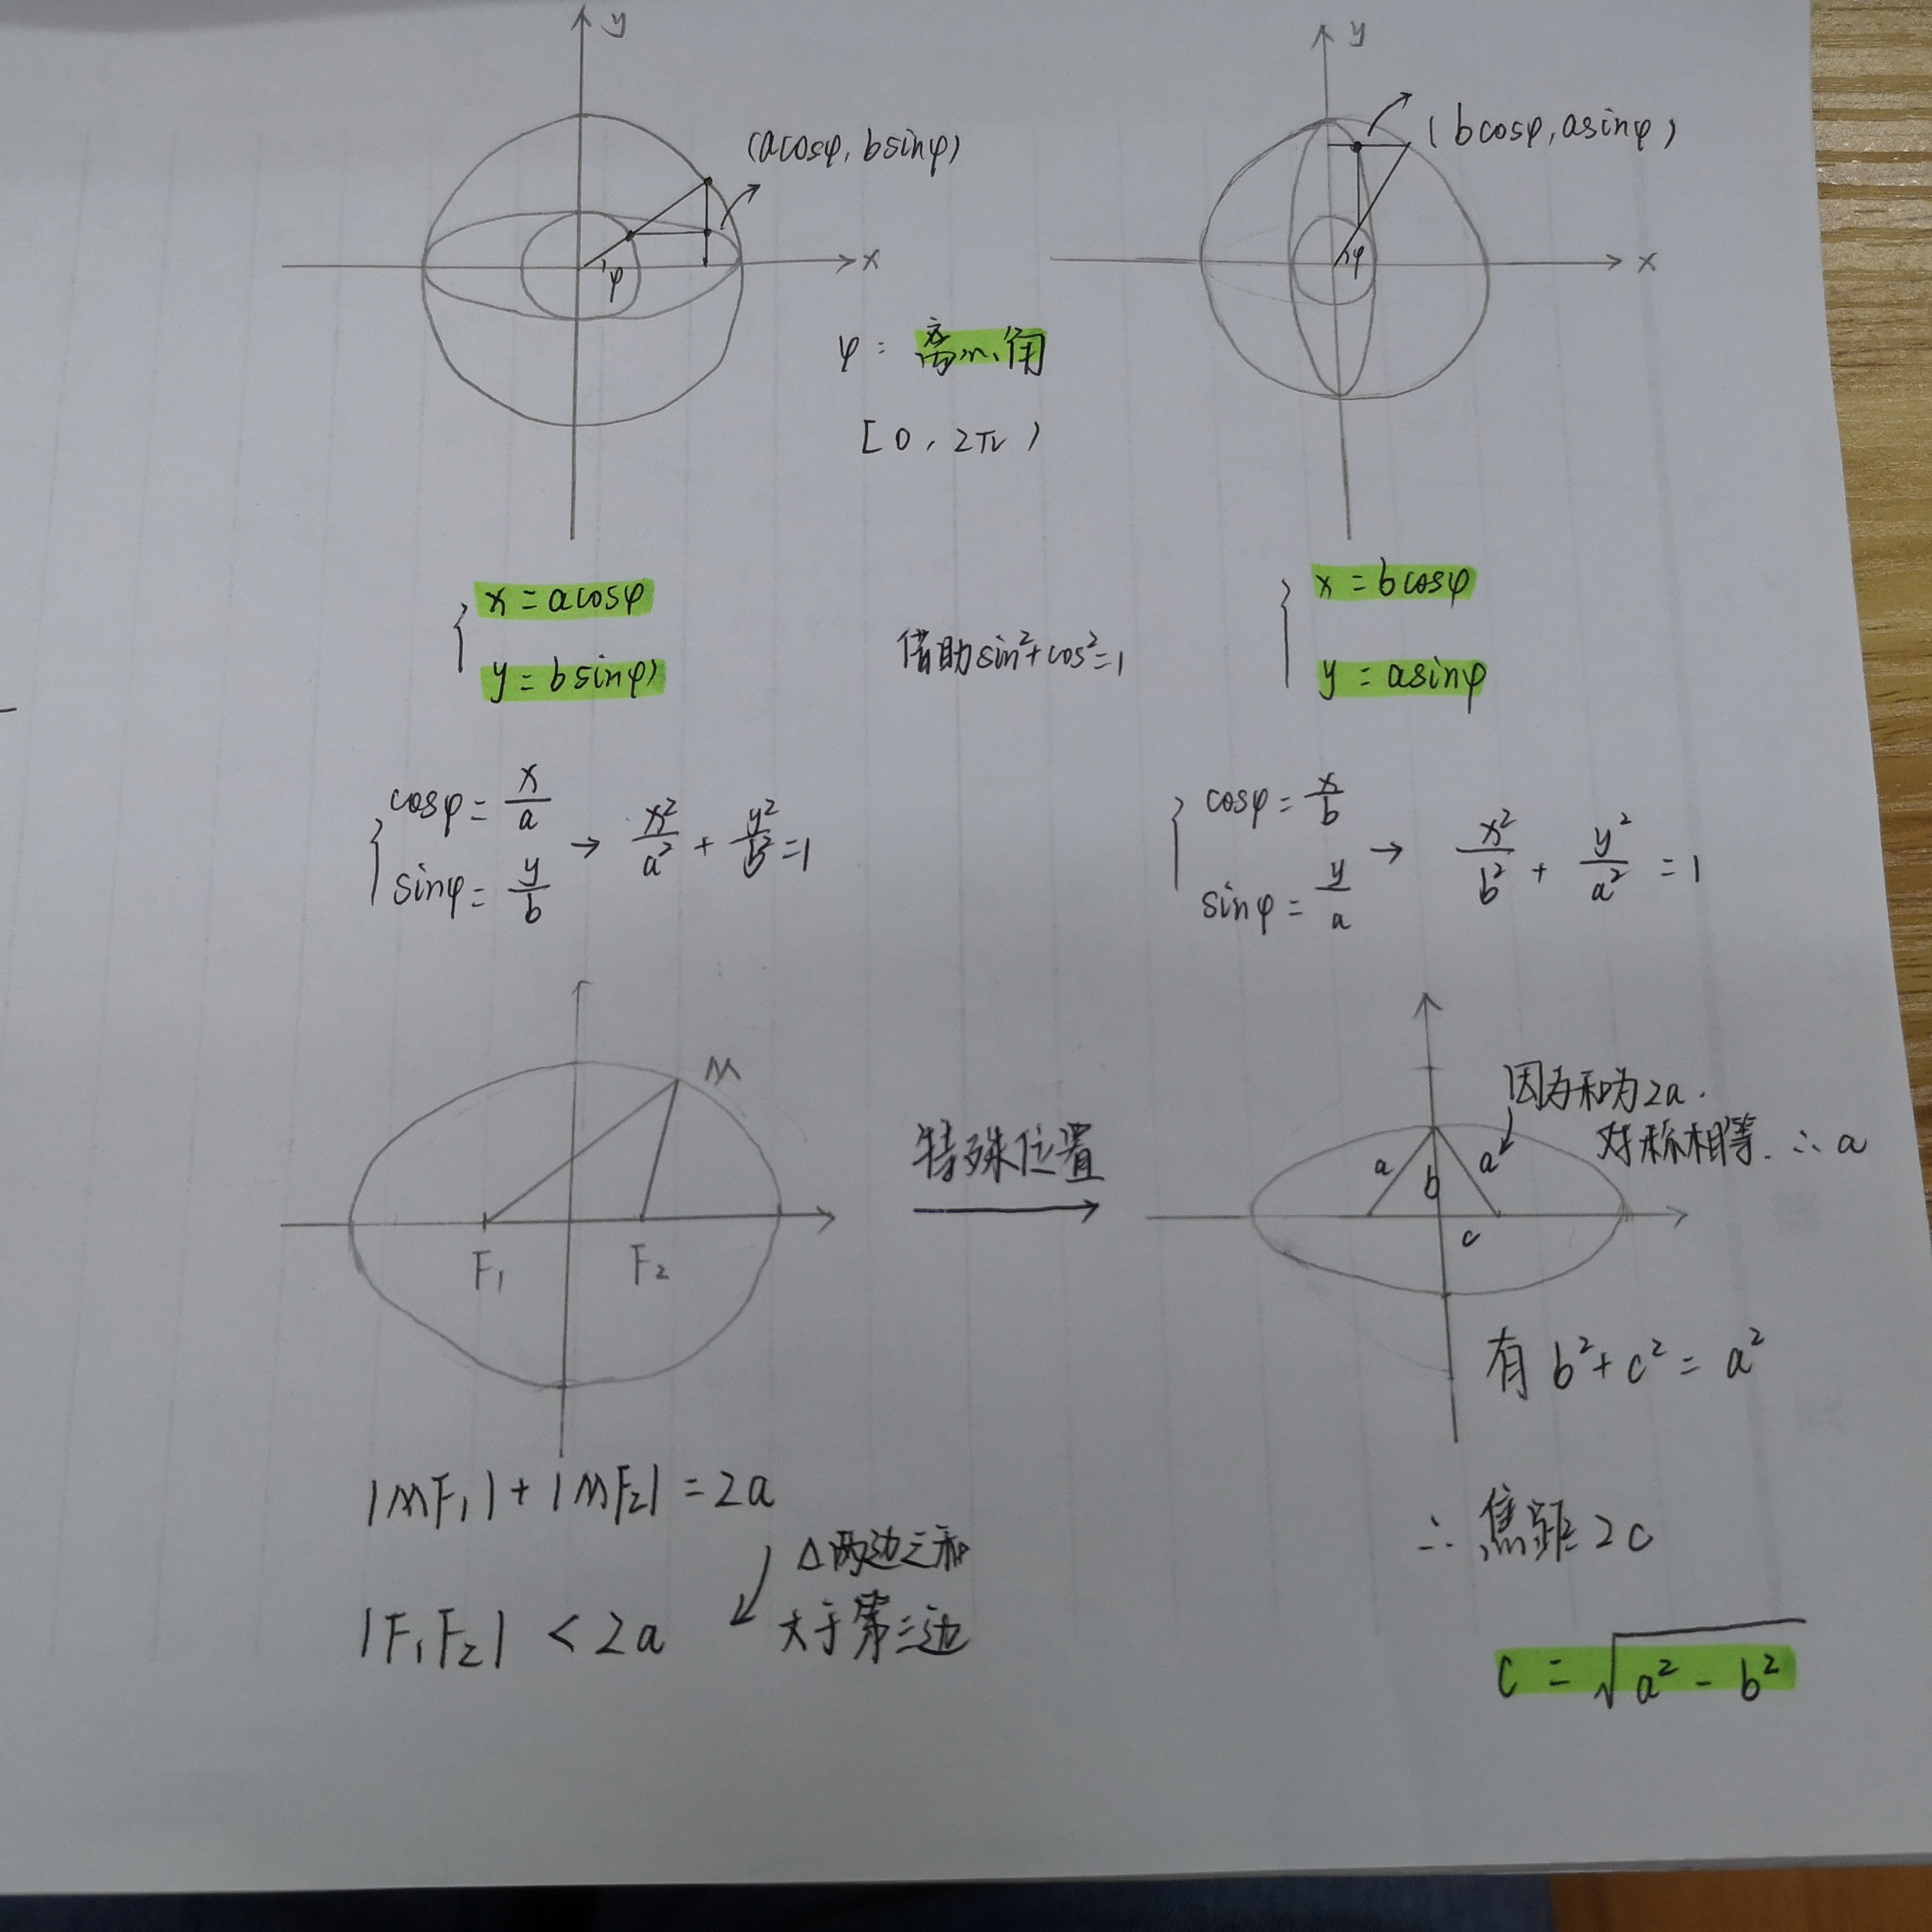 y
y
(acosφ, bsinφ)
(bcosφ, asinφ)
x
x
φ
φ
φ: 离心角
[0, 2π)
x = acosφ
y = bsinφ)
借助sin²+cos²=1
x = bcosφ
y = asinφ
cosφ = x/a
sinφ = y/b
→ x²/a² + y²/b² = 1
cosφ = x/b
sinφ = y/a
→ x²/b² + y²/a² = 1
M
F₁ F₂
特殊位置
因为和为2a.
对称相等. ∴ a
a b a
c
有 b²+c² = a²
|MF₁|+|MF₂| = 2a
Δ两边之和
大于第三边
|F₁F₂| < 2a
∴ 焦距 2c
c = √(a² - b²)